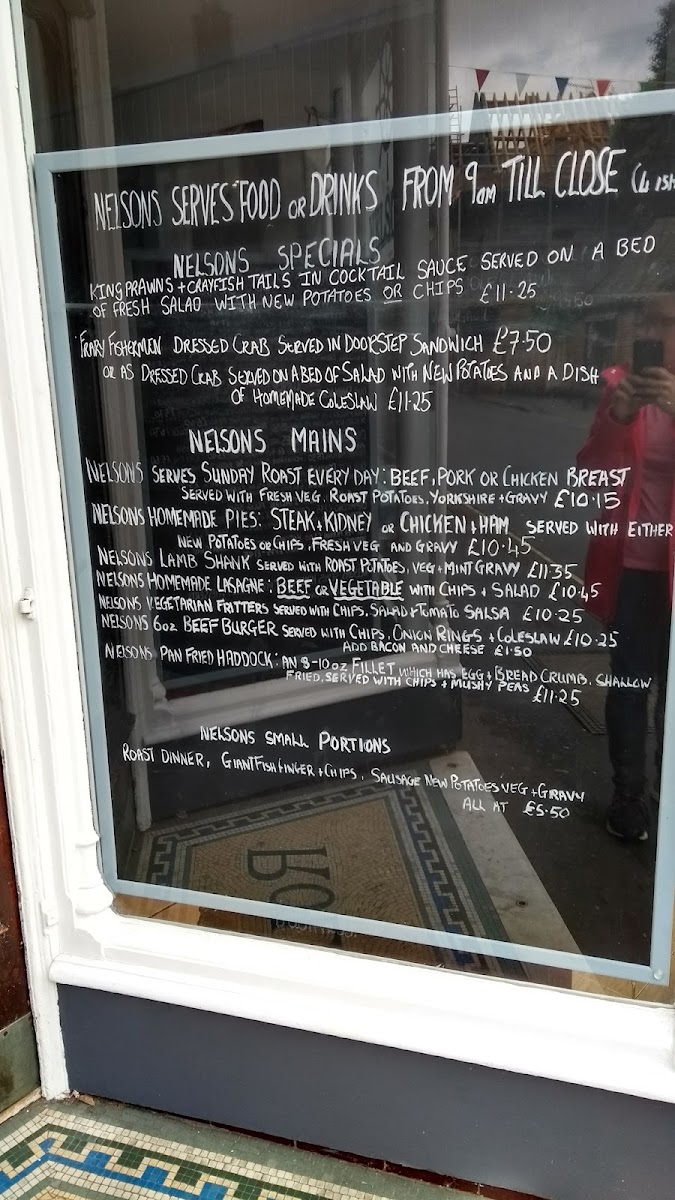 NELSONS SERVES FOOD OR DRINKS FROM 9am TILL CLOSE
NELSONS SPECIALS
KING PRAWNS + CRAYFISH TAILS IN COCKTAIL SAUCE SERVED ON A BED
OF FRESH SALAD WITH NEW POTATOES OR CHIPS £11·25
FISHERMEN DRESSED CRAB SERVED IN DOORSTEP SANDWICH £7·50
OR AS DRESSED CRAB SERVED ON A BED OF SALAD WITH NEW POTATOES AND A DISH
OF HOMEMADE COLESLAW £11·25
NELSONS MAINS
NELSONS SERVES SUNDAY ROAST EVERY DAY: BEEF, PORK OR CHICKEN BREAST
SERVED WITH FRESH VEG, ROAST POTATOES, YORKSHIRE + GRAVY £10·15
NELSONS HOMEMADE PIES: STEAK + KIDNEY OR CHICKEN + HAM SERVED WITH EITHER
NEW POTATOES OR CHIPS, FRESH VEG AND GRAVY £10·45
NELSONS LAMB SHANK SERVED WITH ROAST POTATOES, VEG + MINT GRAVY £11·35
NELSONS HOMEMADE LASAGNE: BEEF OR VEGETABLE WITH CHIPS + SALAD £10·45
NELSONS VEGETARIAN FRITTERS SERVED WITH CHIPS, SALAD + TOMATO SALSA £10·25
NELSONS 6oz BEEF BURGER SERVED WITH CHIPS, ONION RINGS + COLESLAW £10·25
ADD BACON AND CHEESE £1·50
NELSONS PAN FRIED HADDOCK: AN 8-10oz FILLET WHICH HAS EGG + BREAD CRUMB, SHALLOW
FRIED, SERVED WITH CHIPS + MUSHY PEAS £11·25
NELSONS SMALL PORTIONS
ROAST DINNER, GIANT FISH FINGER + CHIPS, SAUSAGE NEW POTATOES VEG + GRAVY
ALL AT £5·50